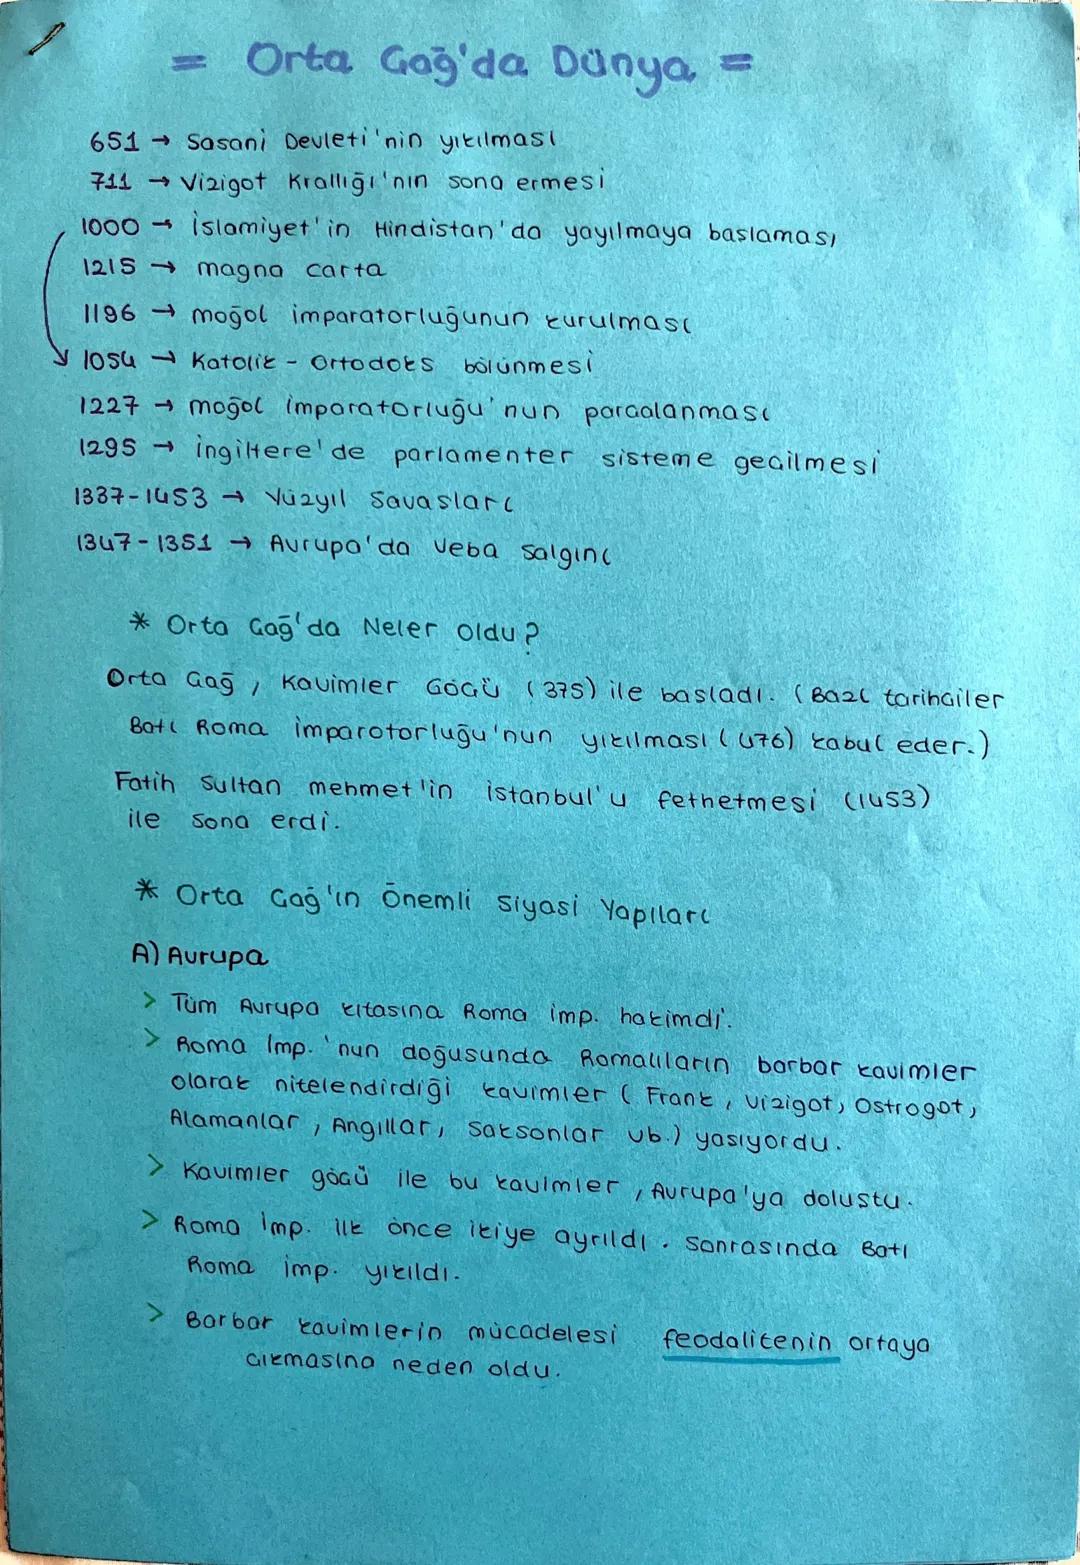 = Orta Çağ'da Dünya =
651 → Sasani Devleti'nin yıkılması
711 → Vizigot Krallığı'nın sona ermesi
1000 → İslamiyet'in Hindistan'da yayılmaya başlaması
1215 → magna carta
1196 → moğol imparatorluğunun kurulması
1054 → Katolik - Ortodoks bölünmesi
1227 → moğol imparatorluğu'nun parçalanması
1295 → İngiltere'de parlamenter sisteme geçilmesi
1337-1453 → Yüzyıl Savaşları
1347-1351 → Avrupa'da veba salgını
* Orta Çağ'da Neler oldu?
Orta Çağ, Kavimler Göçü (375) ile başladı. (Bazı tarihçiler
Batı Roma İmparotorluğu'nun yıkılması (476) kabul eder.)
Fatih Sultan mehmet'in istanbul'u fethetmesi (1453)
ile sona erdi.
* Orta Çağ'ın Önemli Siyasi Yapıları
A) Avrupa
> Tüm Avrupa kıtasına Roma imp. hakimdi.
> Roma İmp.'nun doğusunda Romalıların barbar kavimler
olarak nitelendirdiği kavimler (Frank, Vizigot, Ostrogot,
Alamanlar, Angıllar, Saksonlar vb.) yaşıyordu.
> Kavimler göçü ile bu kavimler, Avrupa'ya doluştu.
> Roma İmp. ilk önce ikiye ayrıldı. Sonrasında Batı
Roma imp. yıkıldı.
> Barbar kavimlerin mücadelesi feodalitenin ortaya
çıkmasına neden oldu.